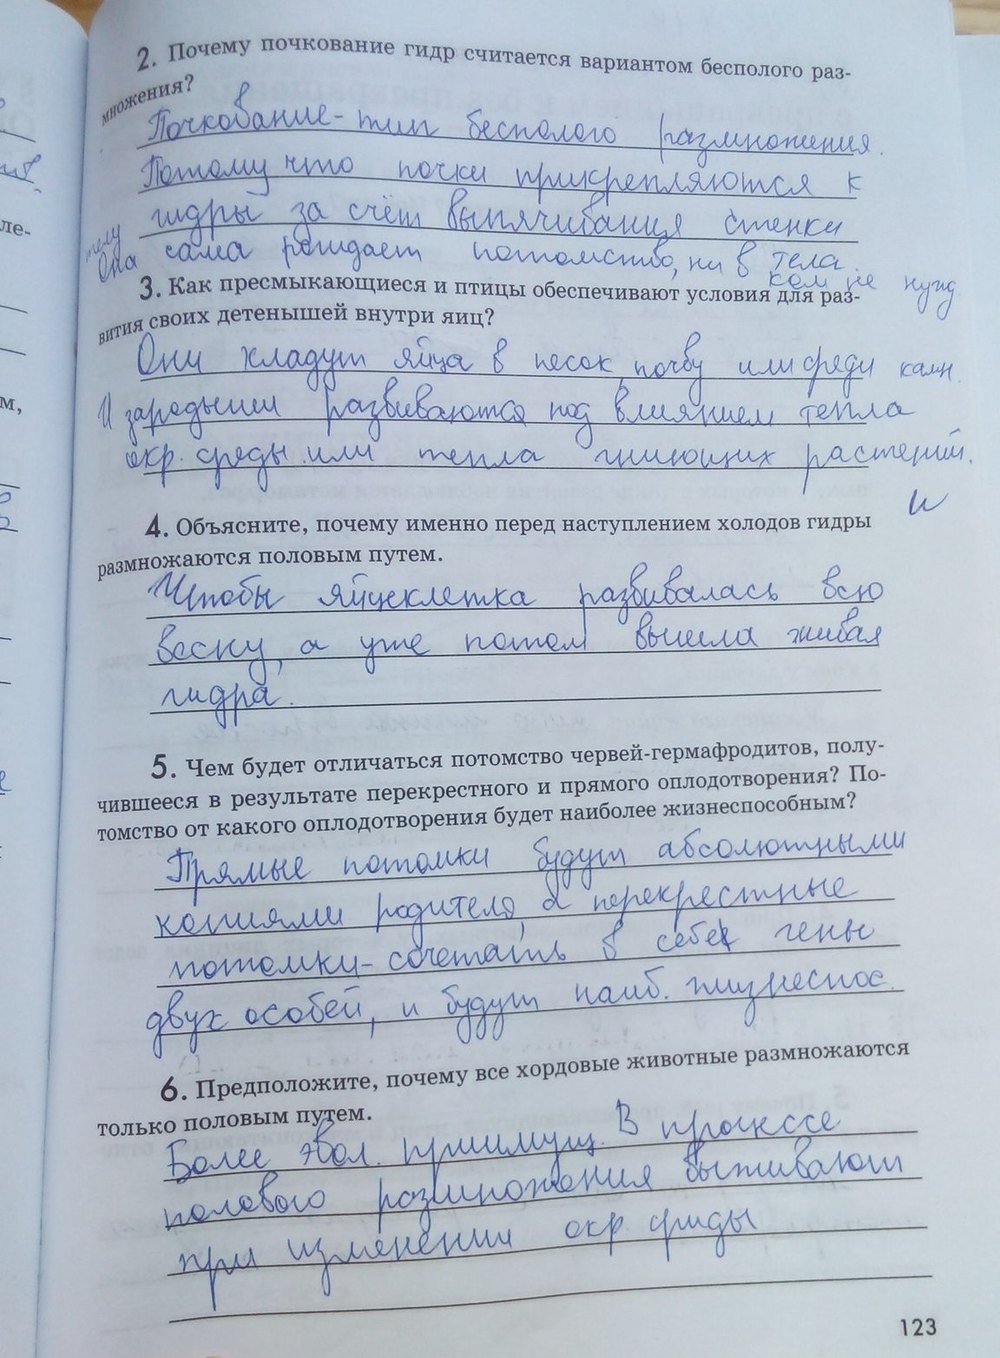 2. Почему почкование гидр считается вариантом бесполого раз-
множения?
Почкование - тип бесполого размножения.
Потому что почки прикрепляются к
телу гидры за счёт выпячивания стенки
тела.
Она сама рождает потомство, ни в ком не нужд
3. Как пресмыкающиеся и птицы обеспечивают условия для раз-
вития своих детенышей внутри яиц?
Они кладут яйца в песок почву или среди камн.
И зародыши развиваются под влиянием тепла
окр. среды или тепла гниющих растений.
4. Объясните, почему именно перед наступлением холодов гидры
размножаются половым путем.
Чтобы яйцеклетка развивалась всю
весну, а уже потом вышла живая
гидра.
5. Чем будет отличаться потомство червей-гермафродитов, полу-
чившееся в результате перекрестного и прямого оплодотворения? По-
томство от какого оплодотворения будет наиболее жизнеспособным?
Прямые потомки будут абсолютными
копиями родителя, а перекрестные
потомки - сочетать в себе гены
двух особей, и будут наиб. жизнеспос.
6. Предположите, почему все хордовые животные размножаются
только половым путем.
Более эвол. приимущ. В процессе
полового размножения выживают
при изменении окр. среды
123